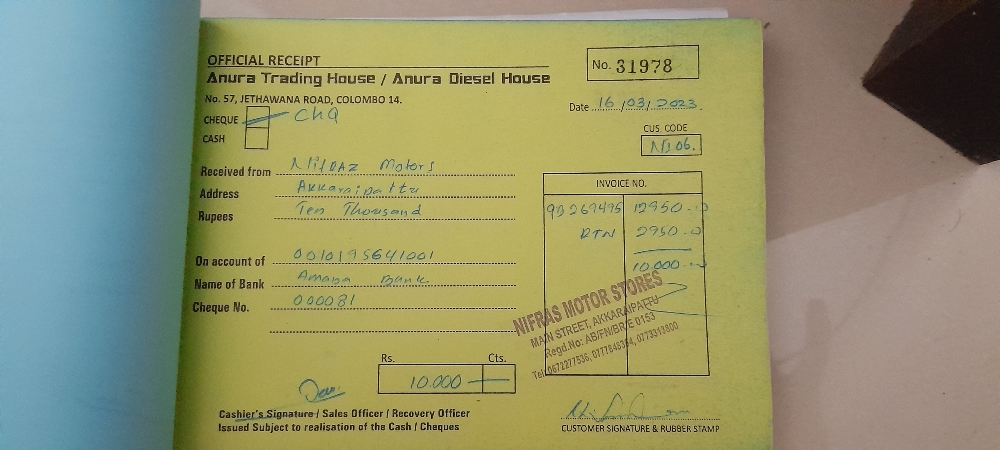 OFFICIAL RECEIPT
Anura Trading House / Anura Diesel House
No. 31978
No. 57, JETHAWANA ROAD, COLOMBO 14.
Date 16/03/2023.
CHEQUE chq
CASH
CUS. CODE
Received from Motors
Address Akkaraipattu
Rupees Ten Thousand
INVOICE NO.
12950
RTN 2950
10,000
On account of 0010195641001
Name of Bank Amana Bank
Cheque No. 000081
NIFRAS MOTOR STORES
MAIN STREET, AKKARAIPATTU
Regd.No: AB/FN/BR/E 0153
Tel: 0672277536, 0773313800
Rs. Cts.
10.000
Cashier's Signature / Sales Officer / Recovery Officer
Issued Subject to realisation of the Cash / Cheques
CUSTOMER SIGNATURE & RUBBER STAMP